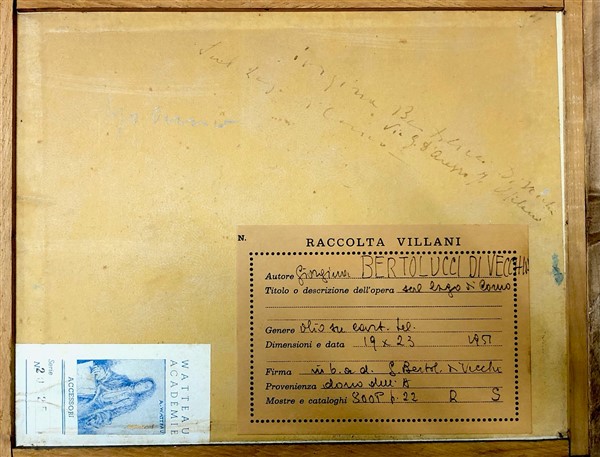 Giorgina Bertolucci Di Vecchio
Sul Lago di Como
Via G. d'Arezzo 7 Milano
N.
RACCOLTA VILLANI
Autore Giorgina BERTOLUCCI DI VECCHIO
Titolo o descrizione dell'opera sul lago di Como
Genere olio su cart. tel.
Dimensioni e data 19 x 23 1951
Firma in b. a d. G. Bertol. di Vecchio
Provenienza dono dell'A
Mostre e cataloghi 300P p. 22 R S
WATTEAU
ACADÉMIE
A. WATTEAU
ACCESSORI
Serie
N2